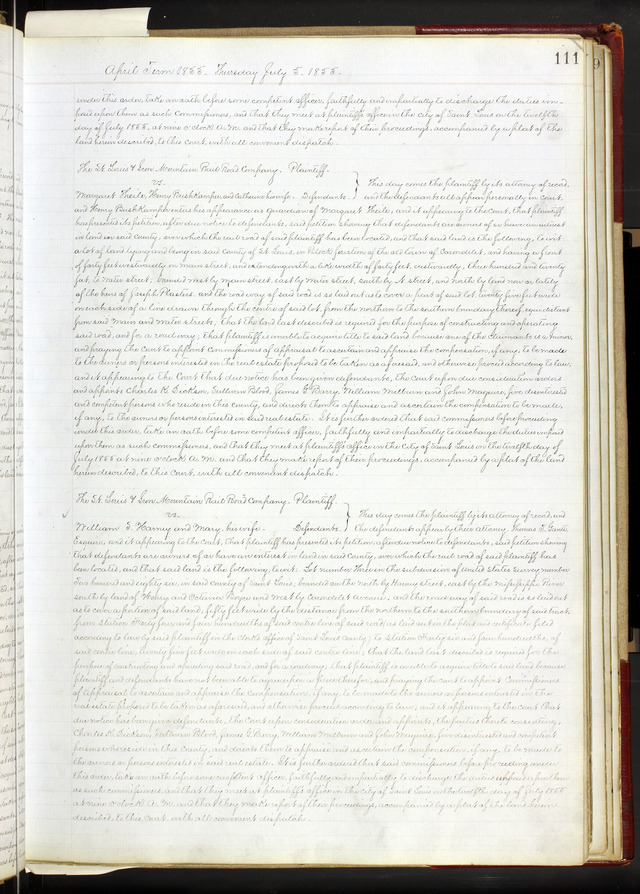 111
April Term 1855. Thursday July 5. 1855.
under this order, take an oath before some competent officer, faithfully and impartially to discharge the duties im-
posed upon them as such Commissioners, and that they meet at plaintiffs office in the city of Saint Louis on the twelfth
day of July 1855, at nine o'clock A. M. and that they make report of their proceedings, accompanied by a plat of the
land herein described, to this Court, with all convenient dispatch.
The St. Louis & Iron Mountain Rail Road Company. Plaintiff.
vs.
This day comes the plaintiff by its attorney of record,
Margaret Theile, Henry Bushkamper and Catharine his wife. Defendants.
and the defendants all appear personally in Court,
and Henry Bushkamper enters his appearance as Guardian of Margaret Theile, and it appearing to the Court, that plaintiff
has presented its petition, after due notice to defendants, said petition showing that defendants are owners of or have an interest
in land in said county, over which the rail road of said plaintiff has been located, and that said land is the following, to wit:
a lot of land lying and being in said county of St. Louis, in Block of the old town of Carondelet, and having a front
of forty feet on main street, and extending with a like width of forty feet, eastwardly, three hundred and twenty
feet, to water street; bounded west by main street, east by water street, south by street, and north by land now or lately
of the heirs of Joseph and the road way of said road is so laid out as to cover a part of said lot, twenty five feet wide
on each side of a line drawn through the centre of said lot, from the northern to the southern boundary thereof, equidistant
from said main and water streets; that the land last described is required for the purpose of constructing and operating
said road, and for a roadway; that plaintiff is unable to acquire title to said land because one of the claimants is a minor,
and praying the Court to appoint Commissioners of appraisal to ascertain and appraise the compensation, if any, to be made
to the owners or persons interested in the real estate proposed to be taken as aforesaid, and otherwise proceed according to law;
and it appearing to the Court that due notice has been given defendants, the Court upon due consideration orders
and appoints Charles K. Dickson, Sullivan Blood, James G. Barry, William Milburn and John Maguire, five disinterested
and competent persons who reside in this county, and directs them to appraise and ascertain the compensation to be made,
if any, to the owners or persons interested in said real estate. It is further ordered that said commissioners before proceeding
under this order, take an oath before some competent officer, faithfully and impartially to discharge the duties imposed
upon them as such commissioners, and that they meet at plaintiffs office in the city of Saint Louis on the twelfth day of
July 1855 at nine o'clock A. M. and that they make report of their proceedings, accompanied by a plat of the land
herein described, to this Court, with all convenient dispatch.
The St. Louis & Iron Mountain Rail Road Company. Plaintiff
vs.
This day comes the plaintiff by its attorney of record, and
William S. Harney and Mary, his wife. Defendants.
the defendants appear by their attorney, Thomas T. Gantt,
Esquire, and it appearing to the Court, that plaintiff has presented its petition, after due notice to defendants, said petition showing
that defendants are owners of or have an interest in land in said county, over which the rail road of said plaintiff has
been located, and that said land is the following, to wit: Lot number in the subdivision of United States Survey number
two hundred and eighty six, in said county of Saint Louis, bounded on the north by Harney street, east by the Mississippi River
south by land of Henry and Octavia Boyce and west by Carondelet Avenue; and the road way of said road is so laid out
as to cover a portion of said land, fifty feet wide by the distance from the northern to the southern boundary of said tract
from Station Forty four and four hundredths of said centre line of said road as laid out in the plat and certificate filed
according to law by said plaintiff in the Clerks office of Saint Louis County, to Station Forty six and four hundredths, of
said centre line, twenty five feet wide on each side of said centre line; that the land last described is required for the
purpose of constructing and operating said road, and for a roadway; that plaintiff is unable to acquire title to said land because
plaintiff and defendants have not been able to agree upon a price therefor, and praying the Court to appoint Commissioners
of appraisal to ascertain and appraise the compensation, if any, to be made to the owners or persons interested in the
real estate proposed to be taken as aforesaid, and otherwise proceed according to law, and it appearing to the Court that
due notice has been given defendants, the Court upon consideration orders and appoints, the parties thereto consenting,
Charles K. Dickson, Sullivan Blood, James G. Barry, William Milburn and John Maguire, five disinterested and competent
persons who reside in this County, and directs them to appraise and ascertain the compensation, if any, to be made to
the owners or persons interested in said real estate. It is further ordered that said commissioners before proceeding under
this order, take an oath before some competent officer, faithfully and impartially to discharge the duties imposed upon them
as such commissioners, and that they meet at plaintiffs office in the city of Saint Louis on the twelfth day of July 1855
at nine o'clock A. M. and that they make report of their proceedings, accompanied by a plat of the land herein
described, to this Court, with all convenient dispatch.